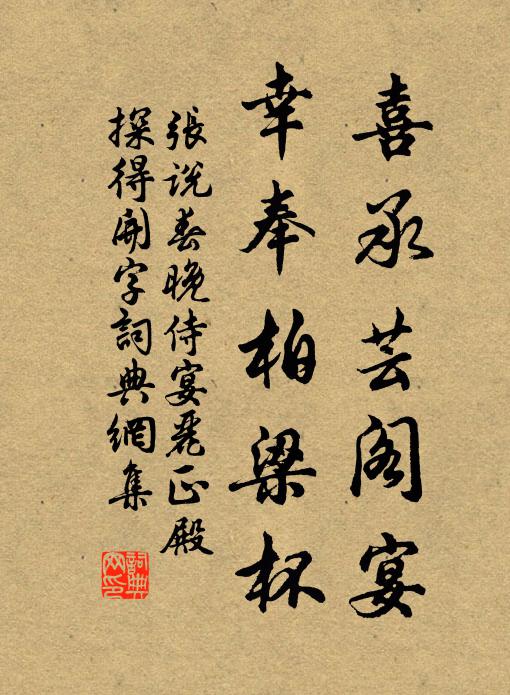 喜承芸阁宴
幸奉柏梁杯
張説春晚侍宴麗正殿
探得開字詞典網集
詞典网印